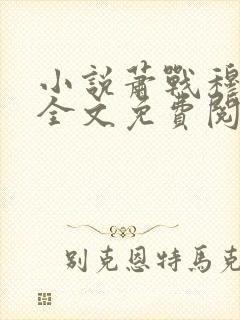 小說蕭戰穆
全文免費閱
別克恩特馬克